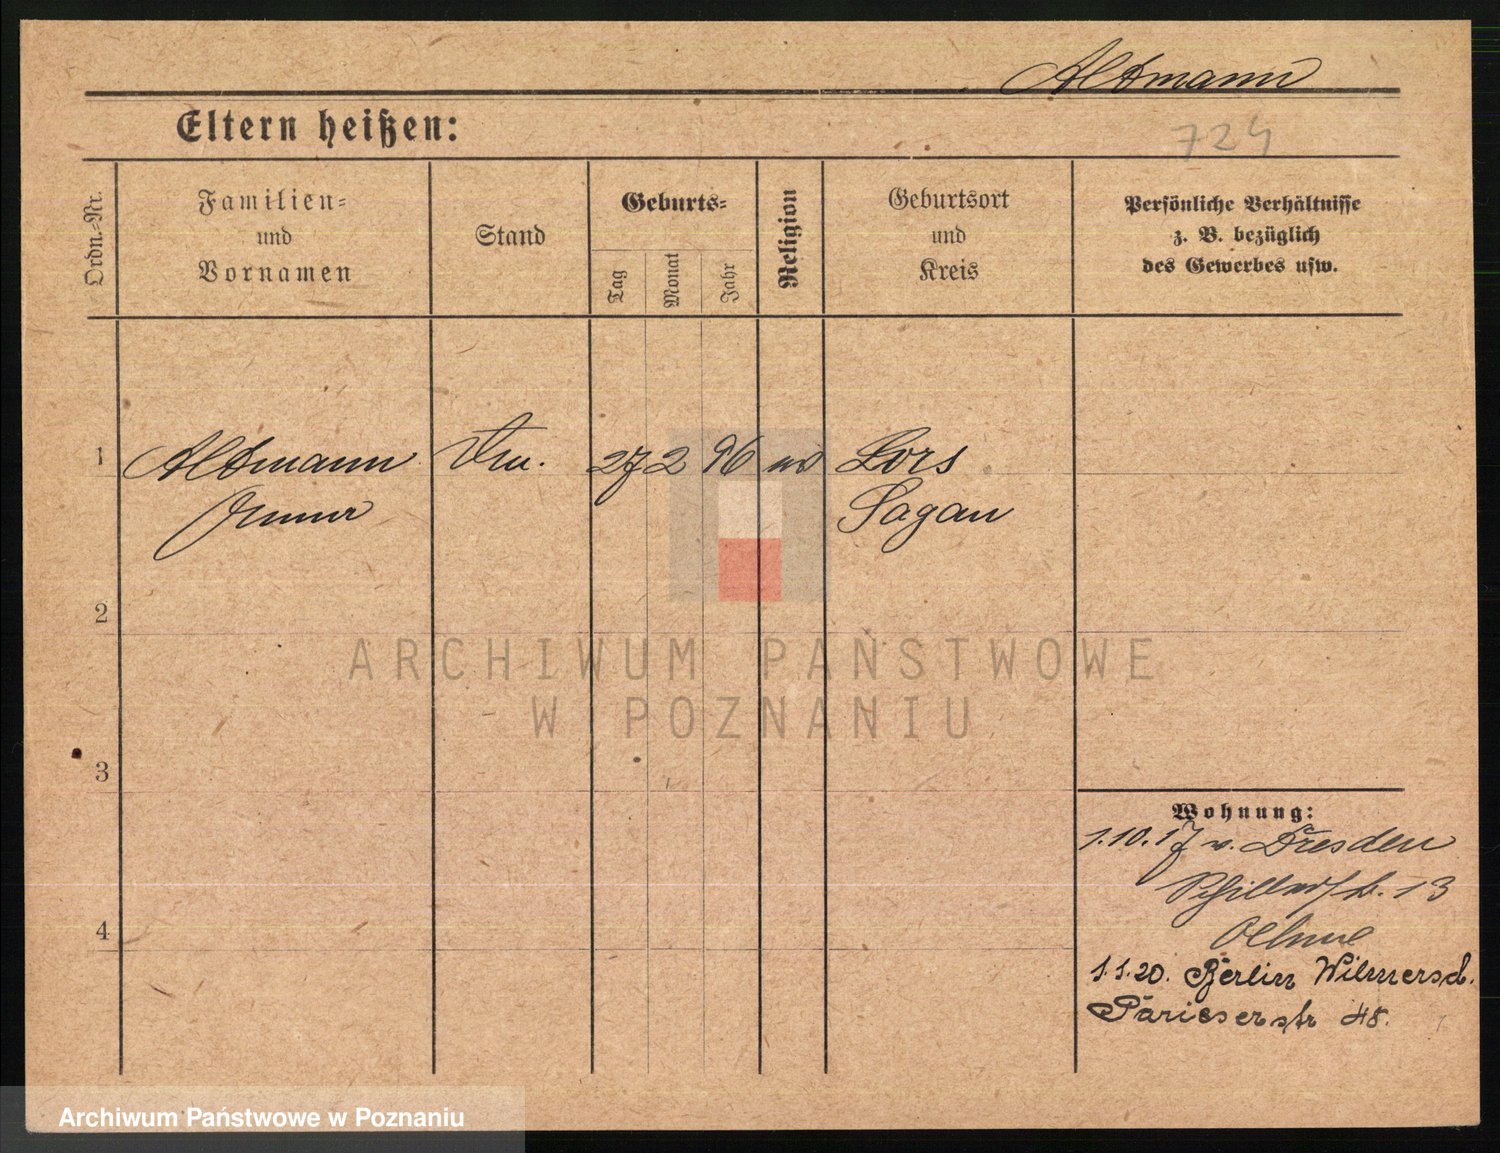 Altmann
Eltern heißen:
724
Ordn.-Nr.
Familien-
und
Vornamen
Stand
Geburts-
Tag
Monat
Jahr
Religion
Geburtsort
und
Kreis
Persönliche Verhältnisse
z. B. bezüglich
des Gewerbes usw.
1
Altmann
27 2 96
Sagan
2
ARCHIWUM PAŃSTWOWE
W POZNANIU
3
Wohnung:
1.10.17 v. Dresden
13
4
1.1.20. Berlin Wilmersd.
Pariserstr 48.
Archiwum Państwowe w Poznaniu